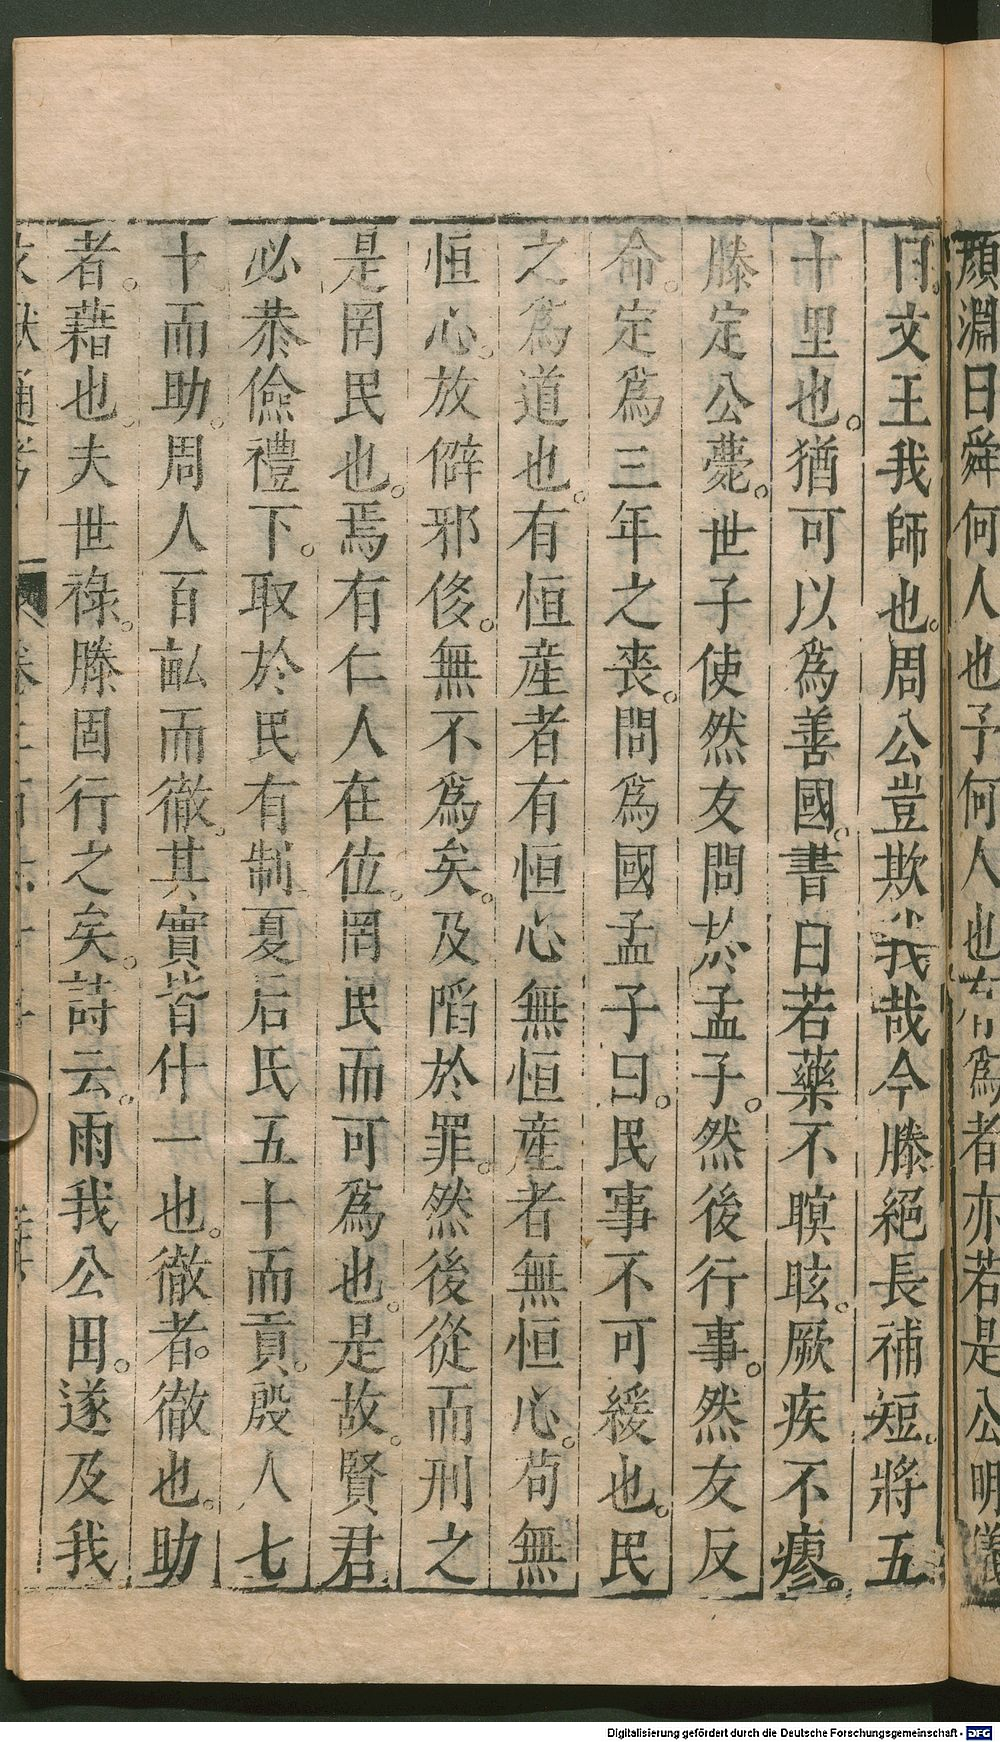 顔淵曰舜何人也予何人也有爲者亦若是公明儀
曰。文王我師也。周公豈欺我哉今滕絕長補短。將五
十里也。猶可以爲善國。書曰若藥不瞑眩。厥疾不瘳。
滕定公薨。世子使然友問於孟子。然後行事。然友反
命。定爲三年之喪。問爲國孟子曰。民事不可緩也。民
之爲道也。有恒産者有恒心無恒産者無恒心。苟無
恒心。放僻邪侈。無不爲矣。及陷於罪。然後從而刑之
是罔民也。焉有仁人在位。罔民而可爲也。是故。賢君
必恭儉禮下。取於民有制夏后氏五十而貢。殷人七
十而助。周人百畝而徹。其實皆什一也。徹者。徹也。助
者。藉也。夫世祿。滕固行之矣。詩云。雨我公田。遂及我
Digitalisierung gefördert durch die Deutsche Forschungsgemeinschaft - DFG